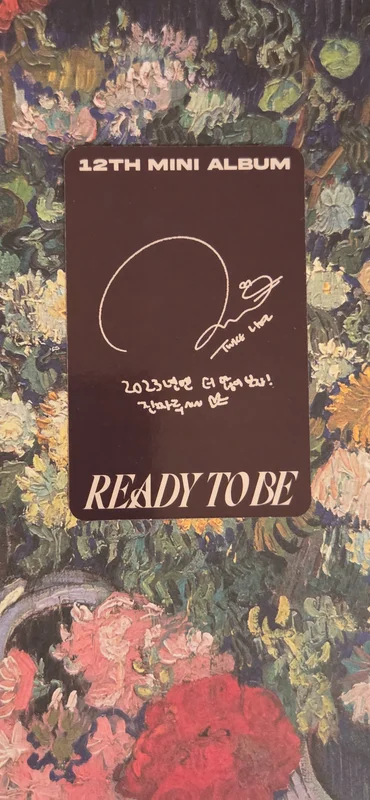 12TH MINI ALBUM
TWICE 나연
2023년엔 더 많이 보자!
진짜루~~
READY TO BE